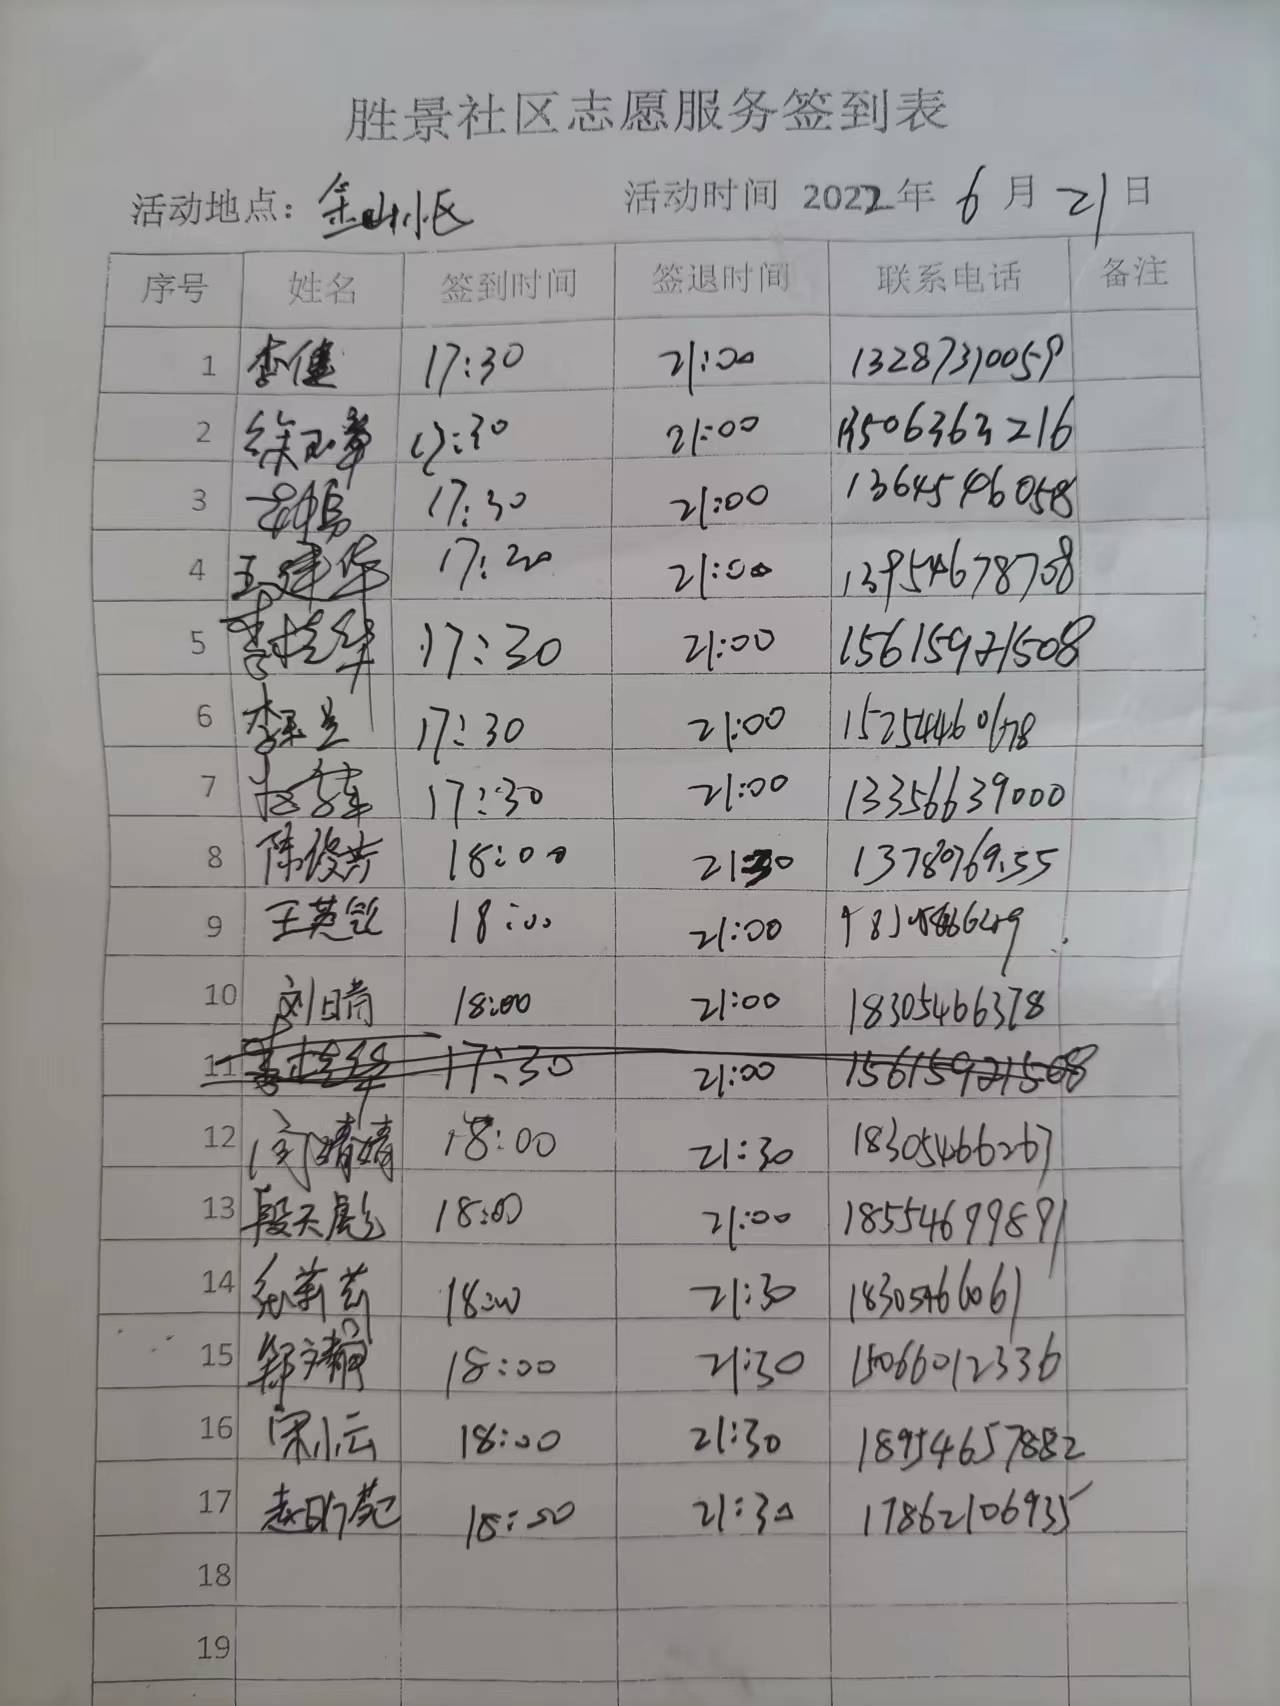 胜景社区志愿服务签到表
活动地点：金山小区 活动时间 2022年 6月 21日
序号 姓名 签到时间 签退时间 联系电话 备注
1 李健 17:30 21:00 13287310059
2 徐玉章 17:30 21:00 13506363216
3 17:30 21:00 1364546058
4 王建华 17:20 21:00 13954678708
5 李桂华 17:30 21:00 15615921508
6 李玉兰 17:30 21:00
7 17:30 21:00 13356639000
8 陈俊芳 18:00 21:30
9 王英 18:00 21:00
10 刘晴 18:00 21:00 18305466378
11 李桂华 17:30 21:00 15615921508
12 闫晴晴 18:00 21:30 18305466267
13 段天彪 18:00 21:00 18554699891
14 张莉莉 18:00 21:30 18305466061
15 郑文静 18:00 21:30 15066012336
16 宋小云 18:00 21:30 18954657882
17 赵 18:00 21:30 17862106935
18
19